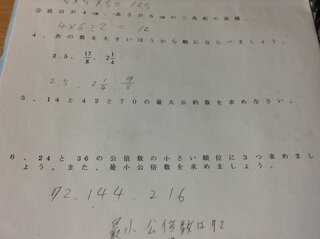 5×5×5=125
③底辺が4㎝、高さが6㎝の三角形の面積。
4×6÷2=12
4．次の数を大きいほうから順にならべましょう。
2.5、 17/8、 2 1/4
2.5. 2 1/4. 17/8
5．14と42と70の最大公約数を求めなさい。
6．24と36の公倍数の小さい順位に3つ求めまし
ょう。また、最小公倍数を求めましょう。
72.144.216
最小公倍数は72